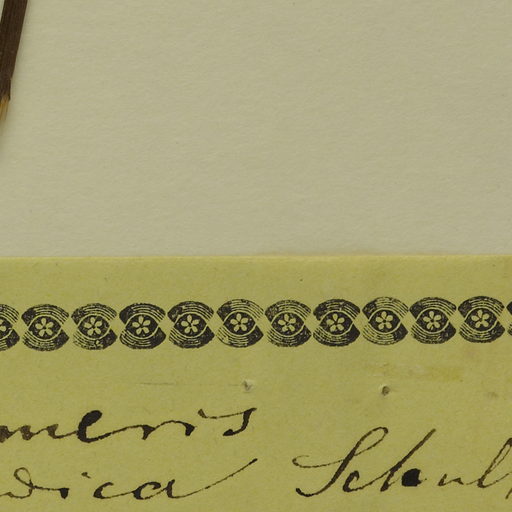 meris
dica Schul